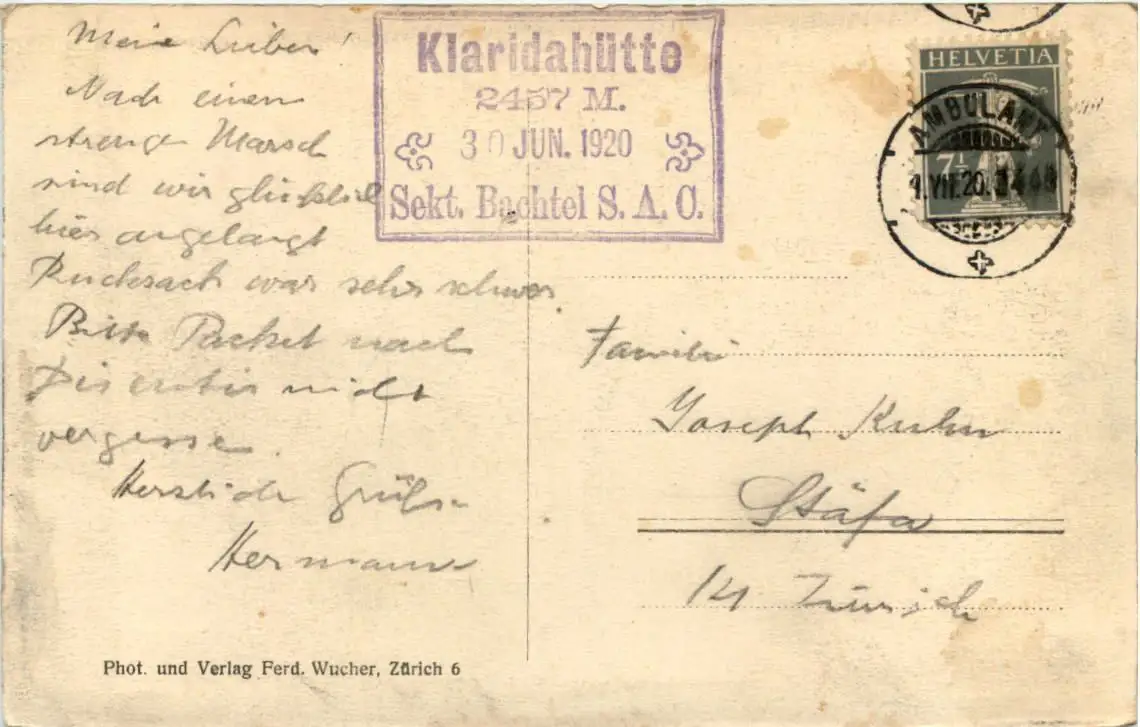 Meine Lieben!
Nach einem
strengen Marsch
sind wir glücklich
hier angelangt
Rucksack war sehr schwer
Bitte Packet nach
Disentis nicht
vergessen.
Herzliche Grüße
Hermann
Phot. und Verlag Ferd. Wucher, Zürich 6
Klaridahütte
2457 M.
30 JUN. 1920
Sekt. Bachtel S.A.C.
HELVETIA
7½
AMBULANT
1.VII.20.
Familie
Joseph Kuhn
Stäfa
Kt Zürich